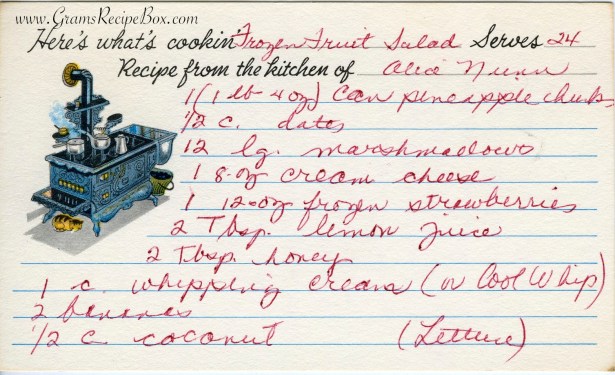 www.GramsRecipeBox.com
Here's what's cookin' Frozen Fruit Salad Serves 24
Recipe from the kitchen of Alice Nunn
1 (1 lb 4 oz) Can pineapple chunks
1/2 c. dates
12 lg. marshmallows
1 8-oz cream cheese
1 12-oz frozen strawberries
2 Tbsp. lemon juice
2 Tbsp. honey
1 c. whipping cream (or Cool Whip)
2 bananas
1/2 c coconut (Lettuce)